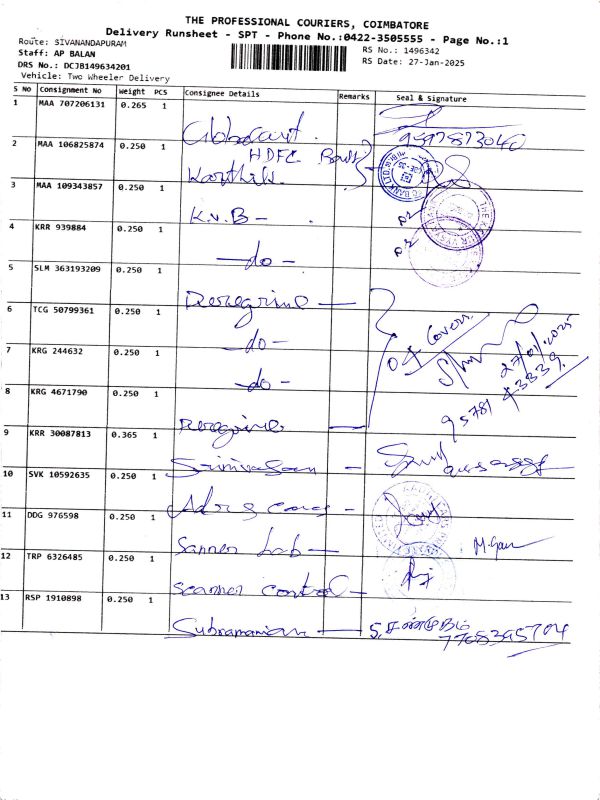 THE PROFESSIONAL COURIERS, COIMBATORE
Delivery Runsheet - SPT - Phone No.:0422-3505555 - Page No.:1
Route: SIVANANDAPURAM
Staff: AP BALAN
DRS No.: DCJB149634201
Vehicle: Two Wheeler Delivery
RS No.: 1496342
RS Date: 27-Jan-2025
S No Consignment No Weight PCS Consignee Details Remarks Seal & Signature
1 MAA 707206131 0.265 1
9597873040
2 MAA 106825874 0.250 1 HDFC Bank
Karthik.
3 MAA 109343857 0.250 1 K.V.B -
4 KRR 939884 0.250 1 -do-
5 SLM 363193209 0.250 1 Peregrine
6 TCG 50799361 0.250 1 -do-
04 Covers
27/01/2025
7 KRG 244632 0.250 1 -do-
95781 43839
8 KRG 4671790 0.250 1 Peregrine
9 KRR 30087813 0.365 1 Srinivasan -
10 SVK 10592635 0.250 1
11 DDG 976598 0.250 1 Sanner Lab -
12 TRP 6326485 0.250 1 Scanner control -
13 RSP 1910898 0.250 1 Subramaniam
7708395704